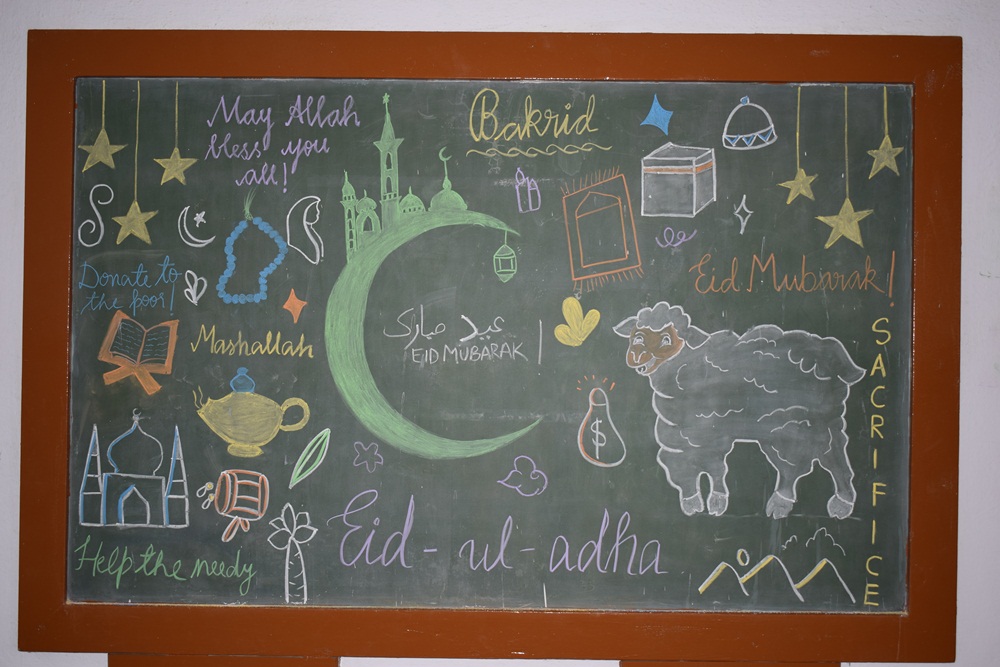 May Allah
bless you
all!
Bakrid
Donate to
the poor!
Eid Mubarak!
Mashallah
عيد مبارك
EID MUBARAK !
$
SACRIFICE
Eid-ul-adha
Help the needy